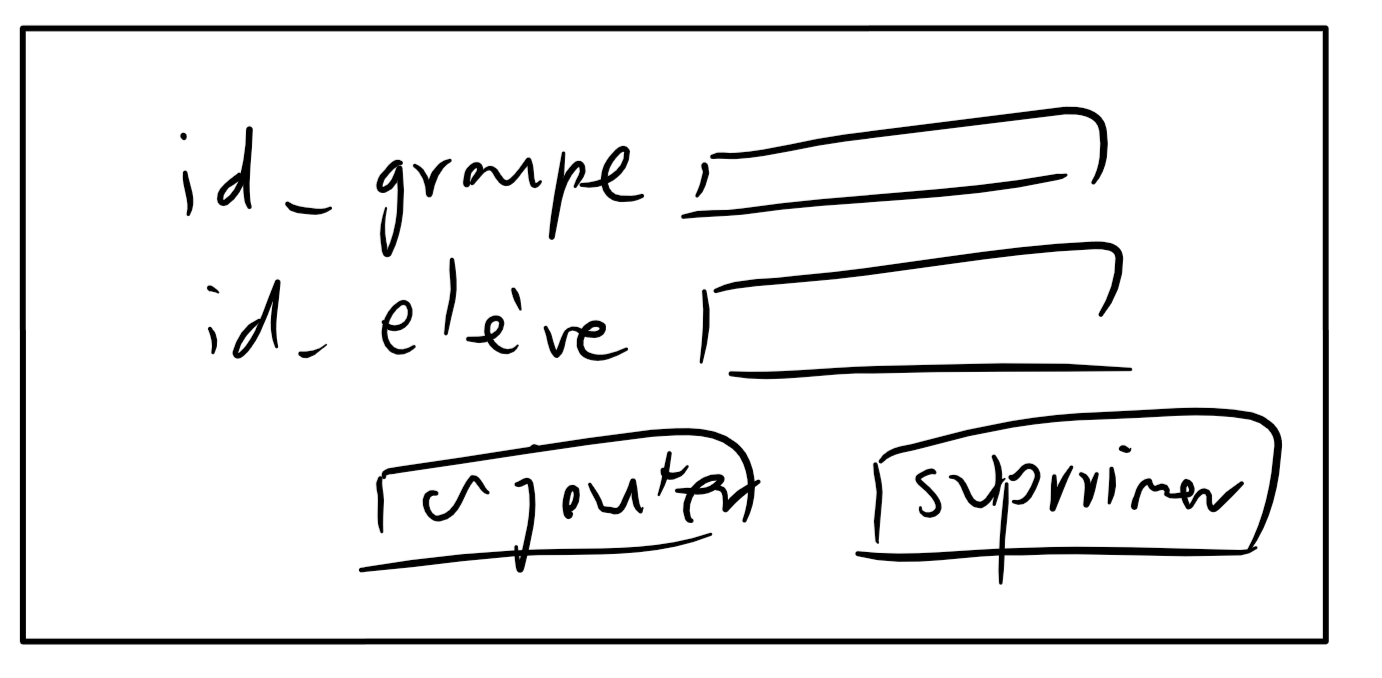 id_groupe
id_elève
ajouter suprrimer